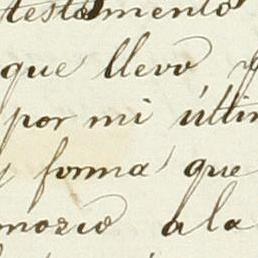 testamento
que llevo
por mi últim
y forma que
morio a la